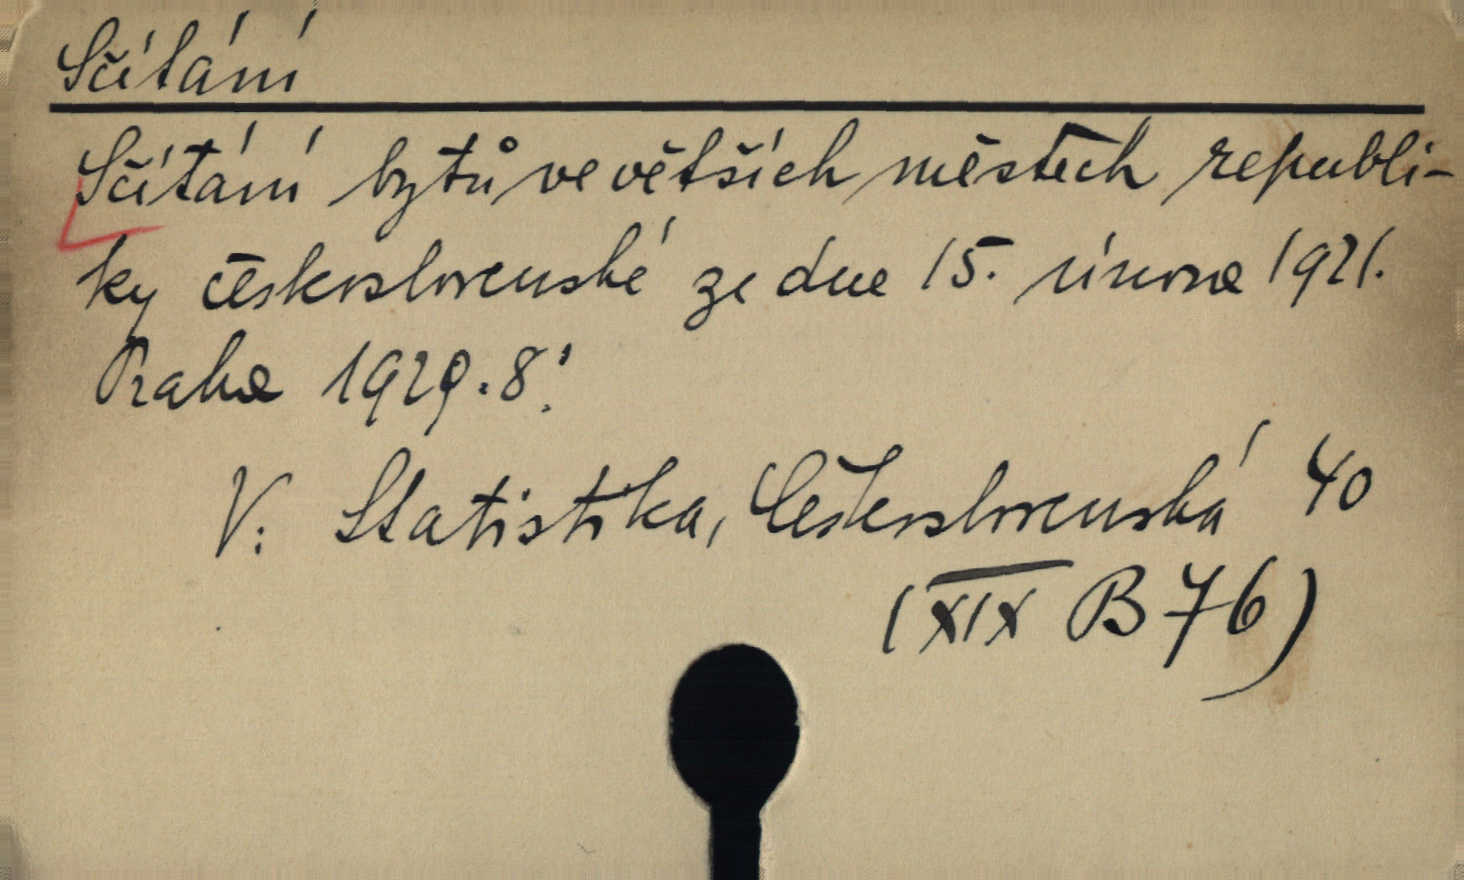 Sčítání
Sčítání bytů ve větších městech republi-
ky československé ze dne 15. února 1921.
Praha 1929. 8°.
V: Statistika, Československá 40
(XIX B 76)